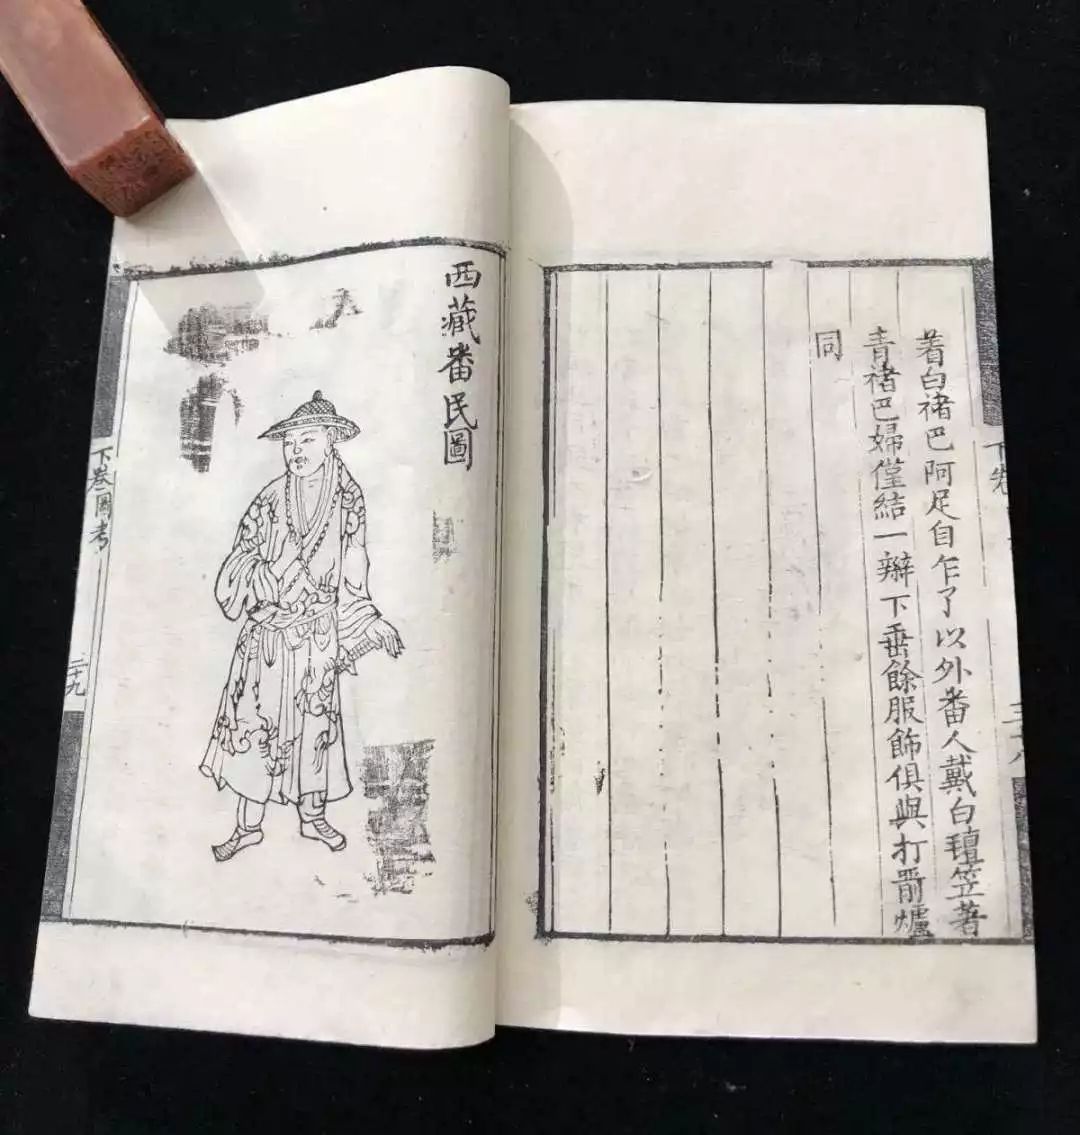 着白褚巴阿足自乍了以外番人戴白氊笠著
青褚巴婦僅結一辮下垂餘服飾俱與打箭爐
同
下卷
西藏番民圖
下卷圖考
二十九